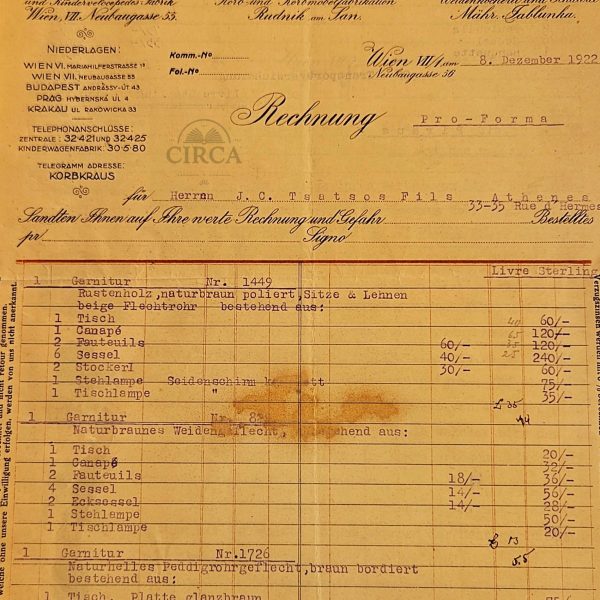 und Kindervelocepedes Fabrik
Wien, VII. Neubaugasse 55.
Korb- und Korbmöbelfabrikation
Rudnik am San.
Mähr. Jablunka.
NIEDERLAGEN:
WIEN VI. MARIAHILFERSTRASSE
WIEN VII. NEUBAUGASSE 55
BUDAPEST ANDRÁSSY-ÚT 43
PRAG HYBERNSKÁ UL 4
KRAKAU UL RAKOWICKA 33
TELEPHONANSCHLÜSSE:
ZENTRALE: 32·421 UND 32·425
KINDERWAGENFABRIK: 30·5·80
TELEGRAMM ADRESSE:
KORBKRAUS
Komm.-No
Fol.-No
Wien VII/1 am 8. Dezember 1922
Neubaugasse 56
Rechnung Pro-Forma
CIRCA
für Herrn J. C. Tsatsos Fils Athenes
33-35 Rue d'Hermes
Sandten Ihnen auf Ihre werte Rechnung und Gefahr Bestelltes
pr Signo
Livre Sterling
1 Garnitur Nr. 1449
Rustenholz,naturbraun poliert,Sitze & Lehnen
beige Flechtrohr bestehend aus:
1 Tisch 60/-
1 Canapé 65 120/-
2 Fauteuils 60/- 35 120/-
6 Sessel 40/- 25 240/-
2 Stockerl 30/- 60/-
1 Stehlampe Seidenschirm 75/-
1 Tischlampe " 35/-
£ 35
1 Garnitur Nr.
Naturbraunes Weidengeflecht, bestehend aus:
1 Tisch 20/-
1 Canapé 32/-
2 Fauteuils 18/- 36/-
4 Sessel 14/- 56/-
2 Ecksessel 14/- 28/-
1 Stehlampe 50/-
1 Tischlampe 20/-
£ 13
5.5
1 Garnitur Nr.1726
Naturhelles Peddigrohrgeflecht,braun bordiert
bestehend aus:
1 Tisch, Platte glanzbraun
Verzugszinsen werden mit
anerkannt.
nicht retour genommen.
welche ohne unsere Einwilligung erfolgen, werden von uns nicht anerkannt.